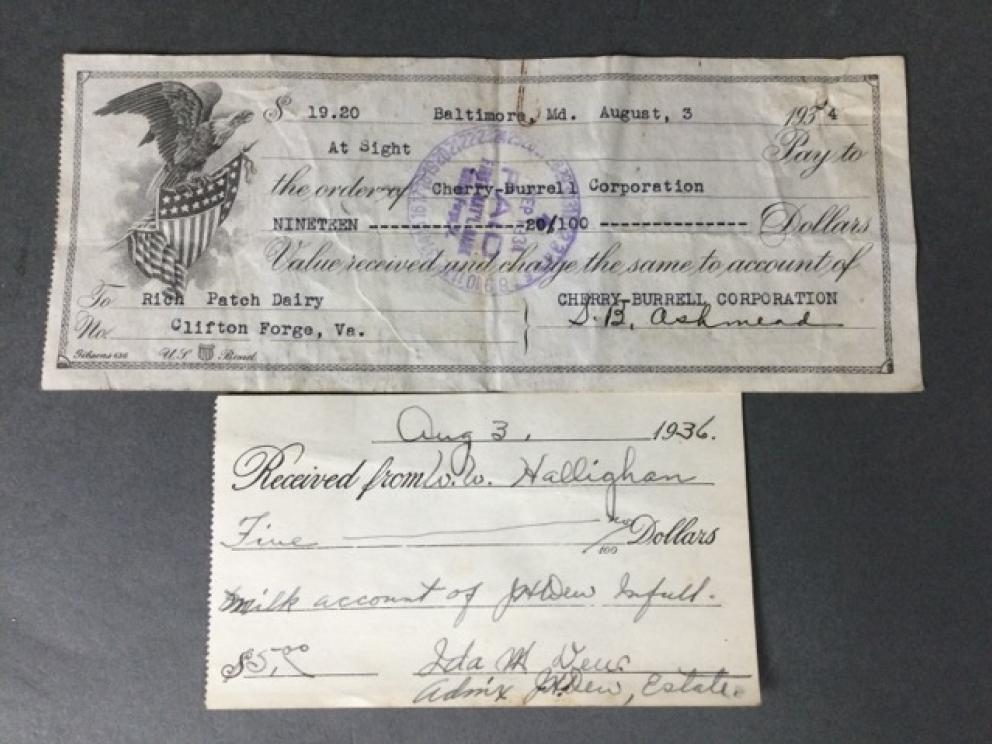 $ 19.20 Baltimore, Md. August, 3 1934
At Sight Pay to
the order of Cherry-Burrell Corporation
NINETEEN ------------------20/100 --------------- Dollars
Value received and charge the same to account of
To Rich Patch Dairy CHERRY-BURRELL CORPORATION
No. Clifton Forge, Va. S. B. Ashmead
Gibsons 636 U.S. Bond
PAID
Aug 3, 1936.
Received from W. W. Hallighan
Five no/100 Dollars
milk account of J H Dew Infull.
$5.00 Ida M Dew
Adm'x J H Dew, Estate.